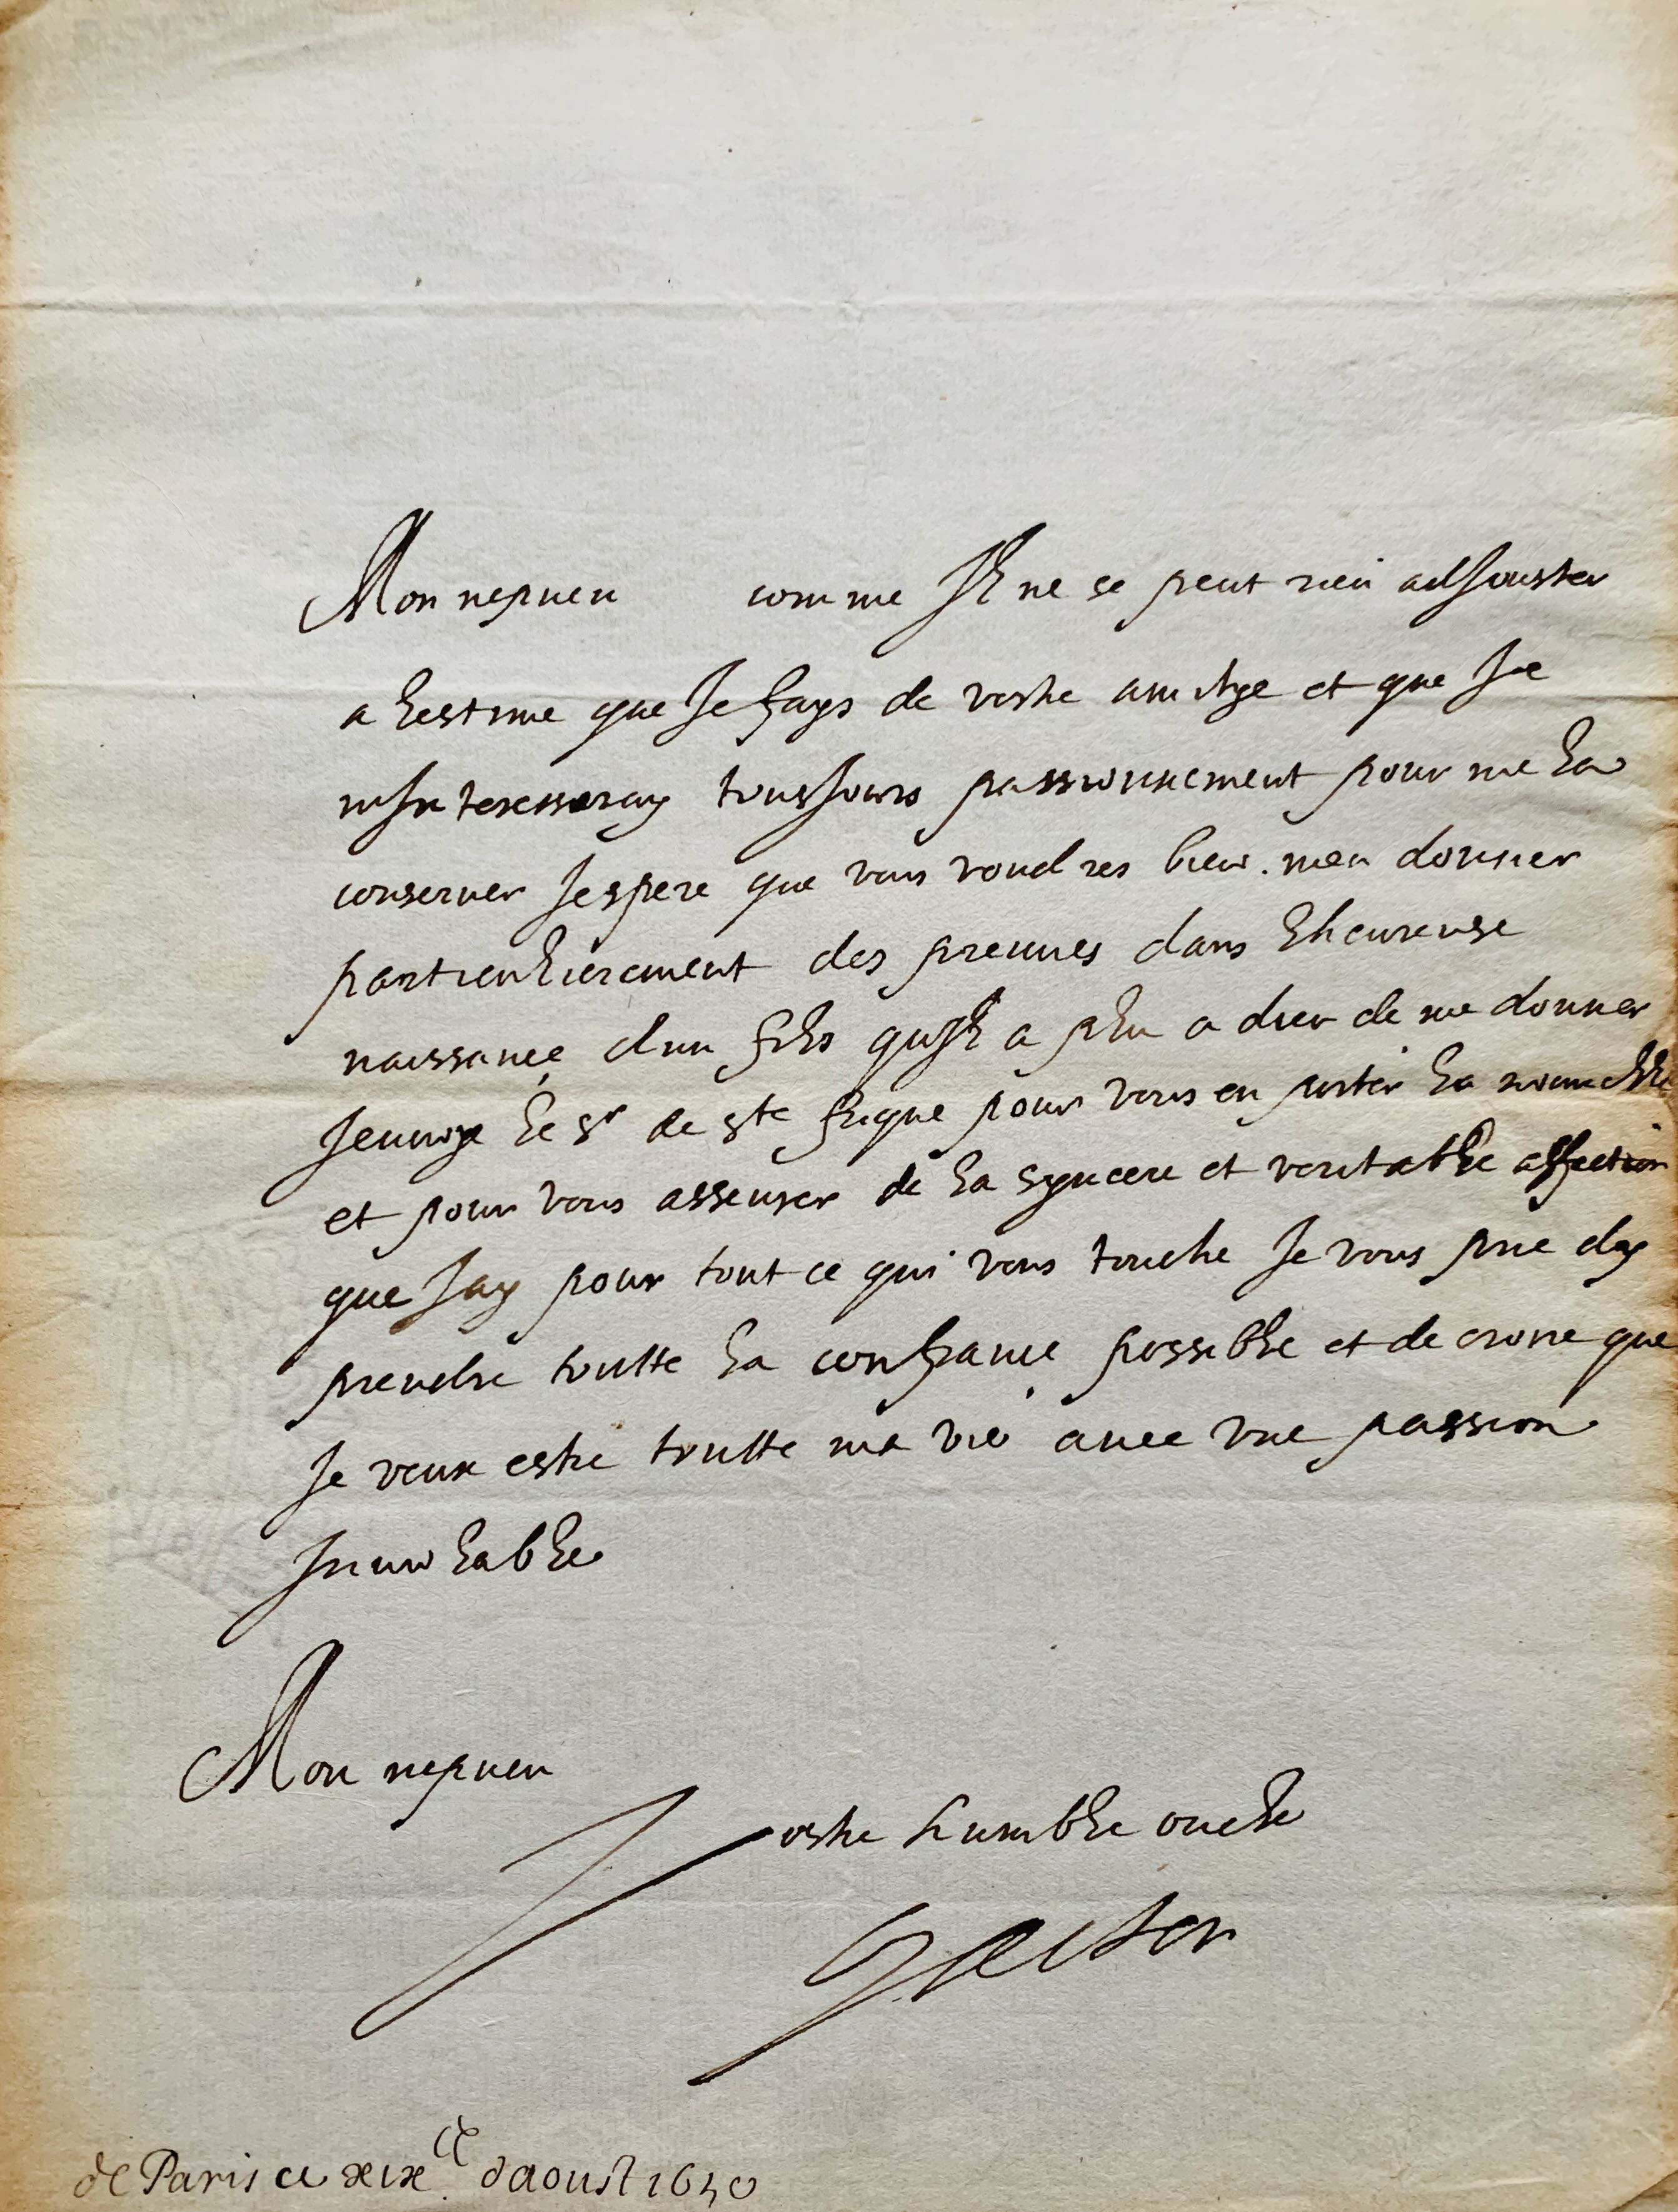 Mon nepueu comme Il ne se peut rien adJouster
a lestime que Je fays de vostre amitye et que Je
mInteresseray tousJours passionnement pour me la
conseruer Jespere que vous voudres bien men donner
particulierement des preuues dans lheureuse
naissance dun fils quIl a plu a dieu de me donner
Jenuoye le sr de ste frique pour vous en porter la nouuelle
et pour vous asseurer de la syncere et veritable affection
que Jay pour tout ce qui vous touche Je vous prie dy
prendre toutte la confiance possible et de croire que
Je veux estre toutte ma vie auec vne passion
Inuiolable
Mon nepueu
Vostre humble oncle
Gaston
de Paris ce xixe daoust 1650